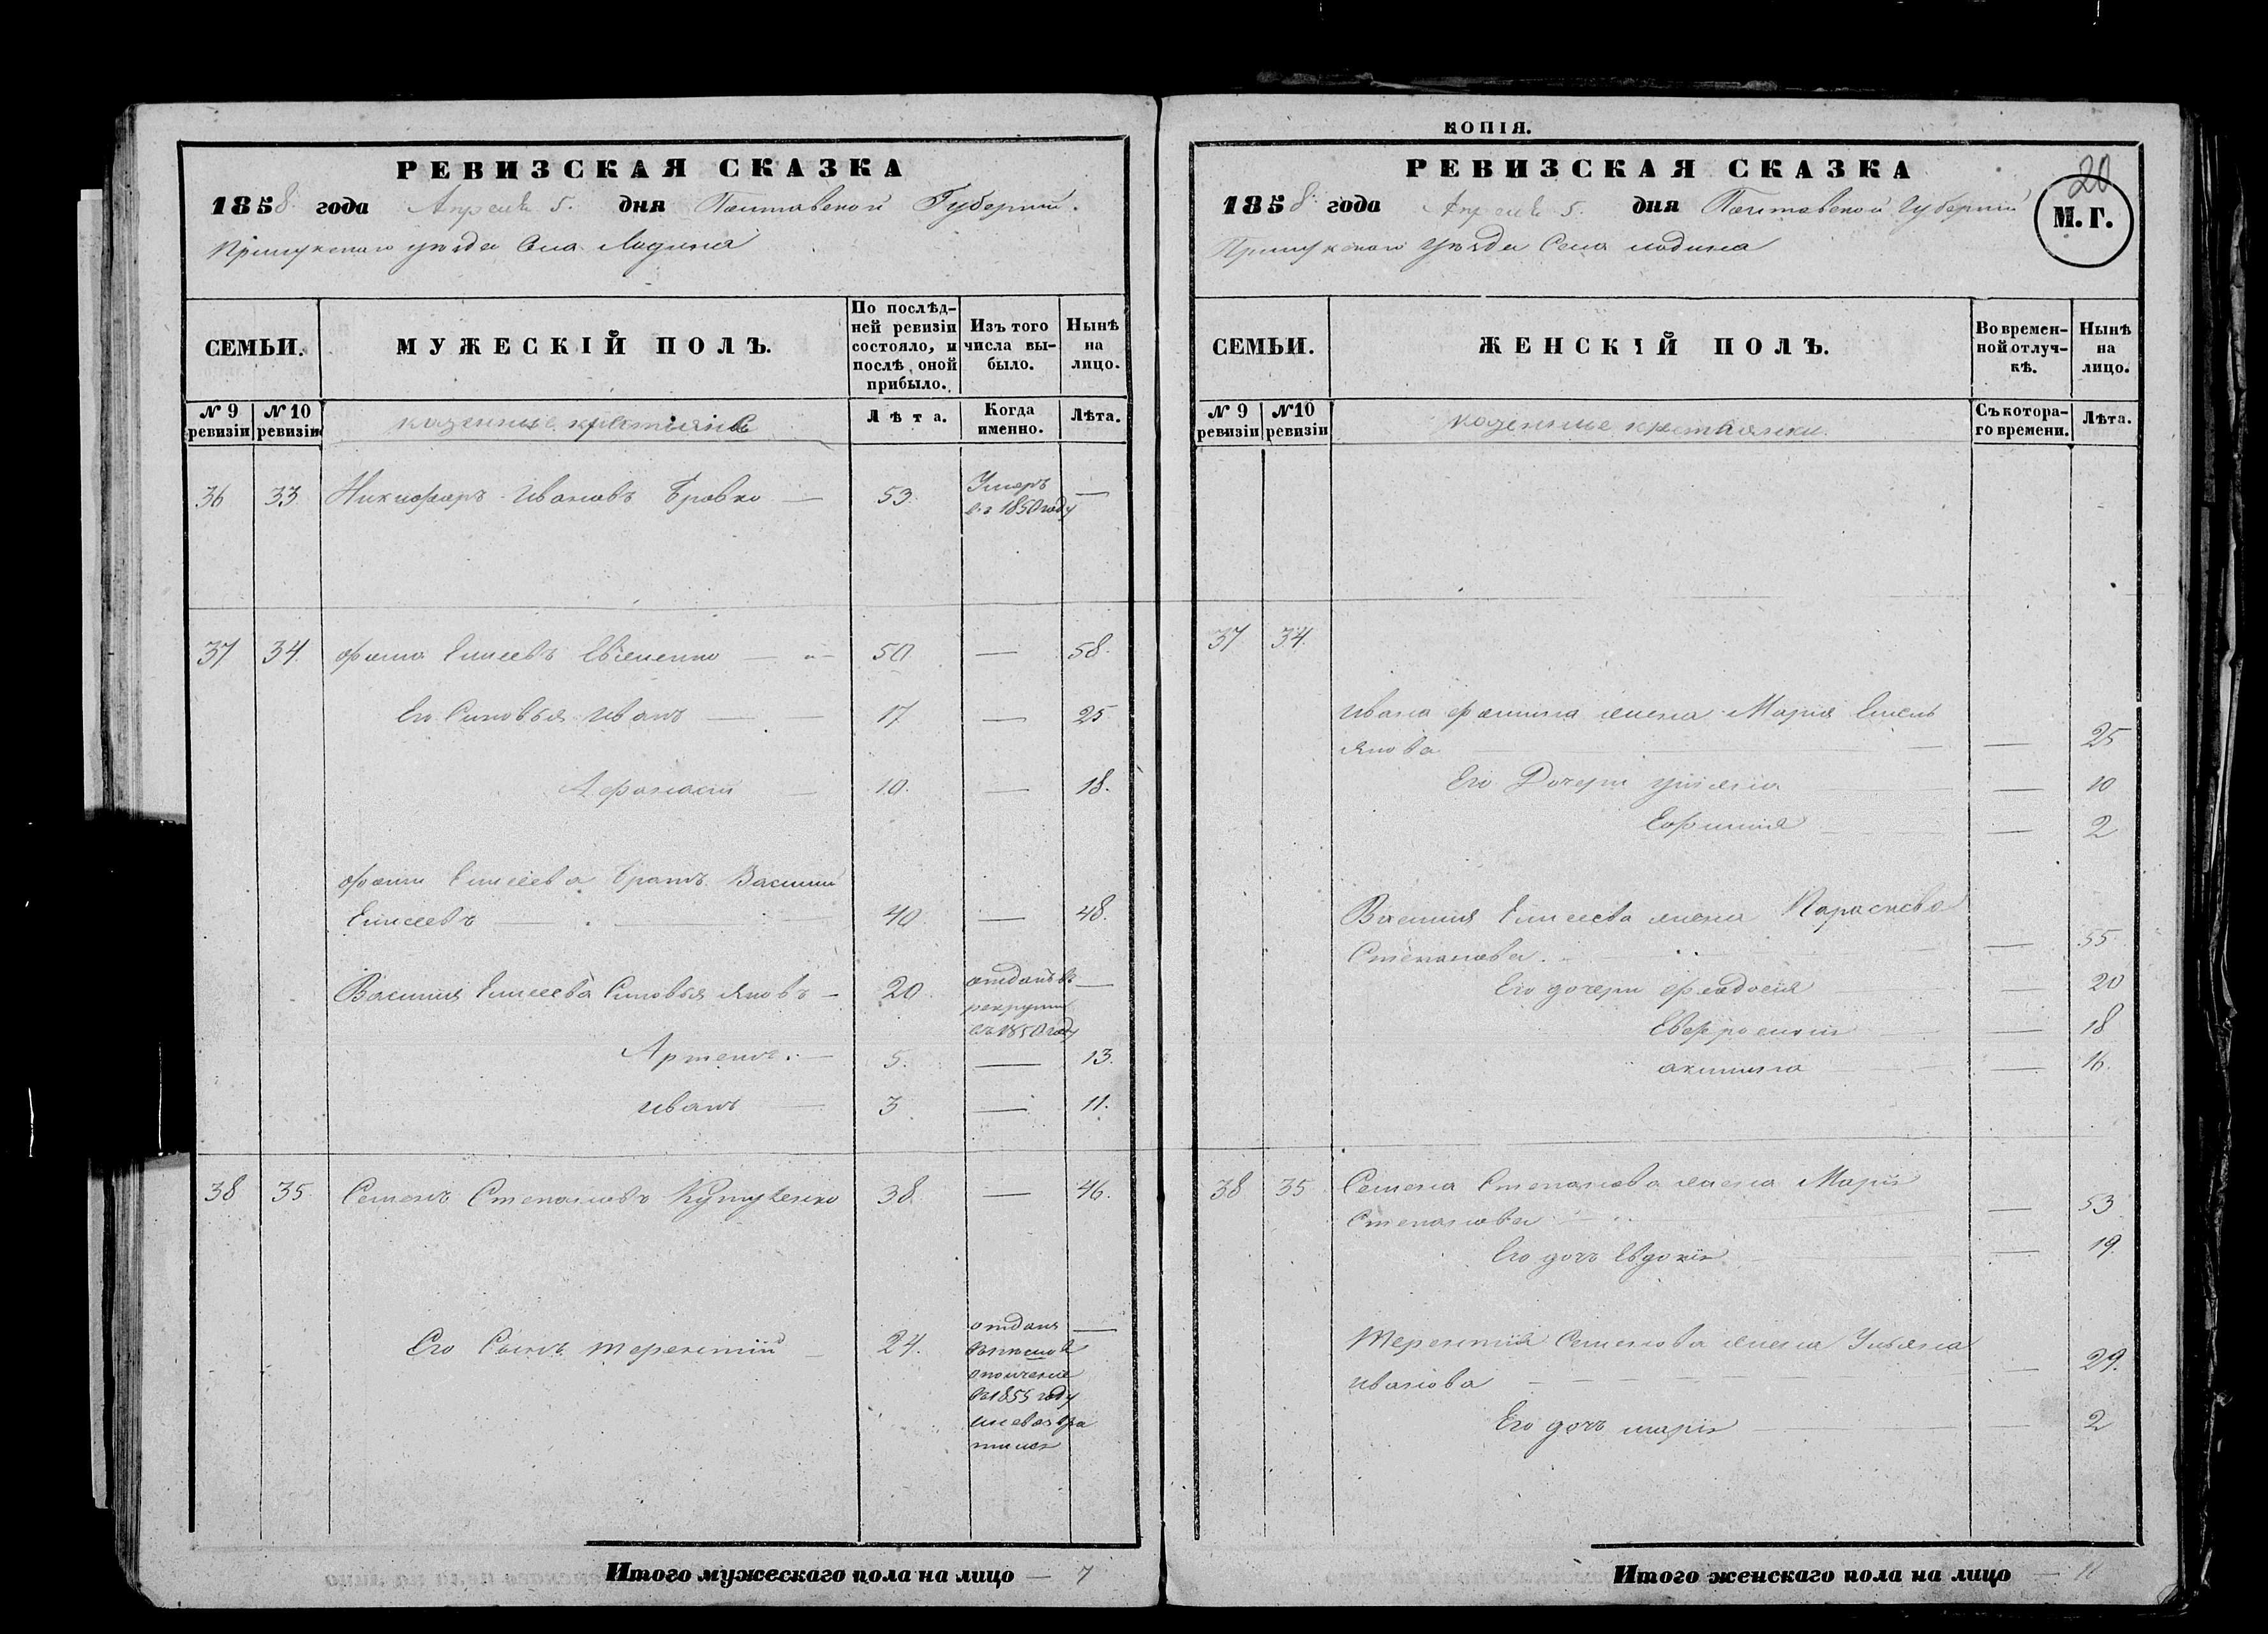 РЕВИЗСКАЯ СКАЗКА
1858 года Апреля 5. дня Полтавской Губернии.
Прилукского уѣзда Села Ладина
СЕМЬИ.
МУЖЕСКІЙ ПОЛЪ.
По послѣд-
ней ревизіи
состояло, и
послѣ оной
прибыло.
Изъ того
числа вы-
было.
Нынѣ
на
лицо.
№ 9
ревизіи
№ 10
ревизіи
казенные крестьяне
Лѣта.
Когда
именно.
Лѣта.
36 33 Никифоръ Ивановъ Бровко — 53. Умеръ —
въ 1850 году
37 34. Фома Елисеевъ — 50 — 58.
Его Сыновья Иванъ — 17 — 25
Афанасий — 10. — 18.
Фомы Елисеева братъ Василий
Елисеевъ — 40 — 48.
Василия Елисеева Сыновья Яковъ — 20 отданъ въ —
рекруты
въ 1850 году
Артемъ. — 5. — 13.
Иванъ — 3 — 11.
38 35 Семенъ Степановъ 38. — 46.
Его Сынъ Терентий — 24. отданъ —
ополчение
въ 1855 году
КОПІЯ.
РЕВИЗСКАЯ СКАЗКА
20
М. Г.
1858 года Апреля 5. дня Полтавской Губернии
Прилукского уѣзда Села Ладина
СЕМЬИ.
ЖЕНСКІЙ ПОЛЪ.
Во времен-
ной отлуч-
кѣ.
Нынѣ
на
лицо.
№ 9
ревизіи
№ 10
ревизіи
казенные крестьянки
Съ котора-
го времени.
Лѣта.
37 34.
Ивана Фомина жена Мария Емель
янова — — 25
Его Дочери Ульяна — 10
Евфимия — 2
Василия Елисеева жена Параскева
Степанова. — 55
Его дочери Феодосия — 20
Евфросиния — 18
Акилина — 16.
38 35 Семена Степанова жена Марія
Степанова — 53
Его дочь Евдокія — 19.
Терентия Семенова жена Ульяна
Иванова — 29.
Его дочь Марія — 2
Итого мужескаго пола на лицо — 7
Итого женскаго пола на лицо — 11